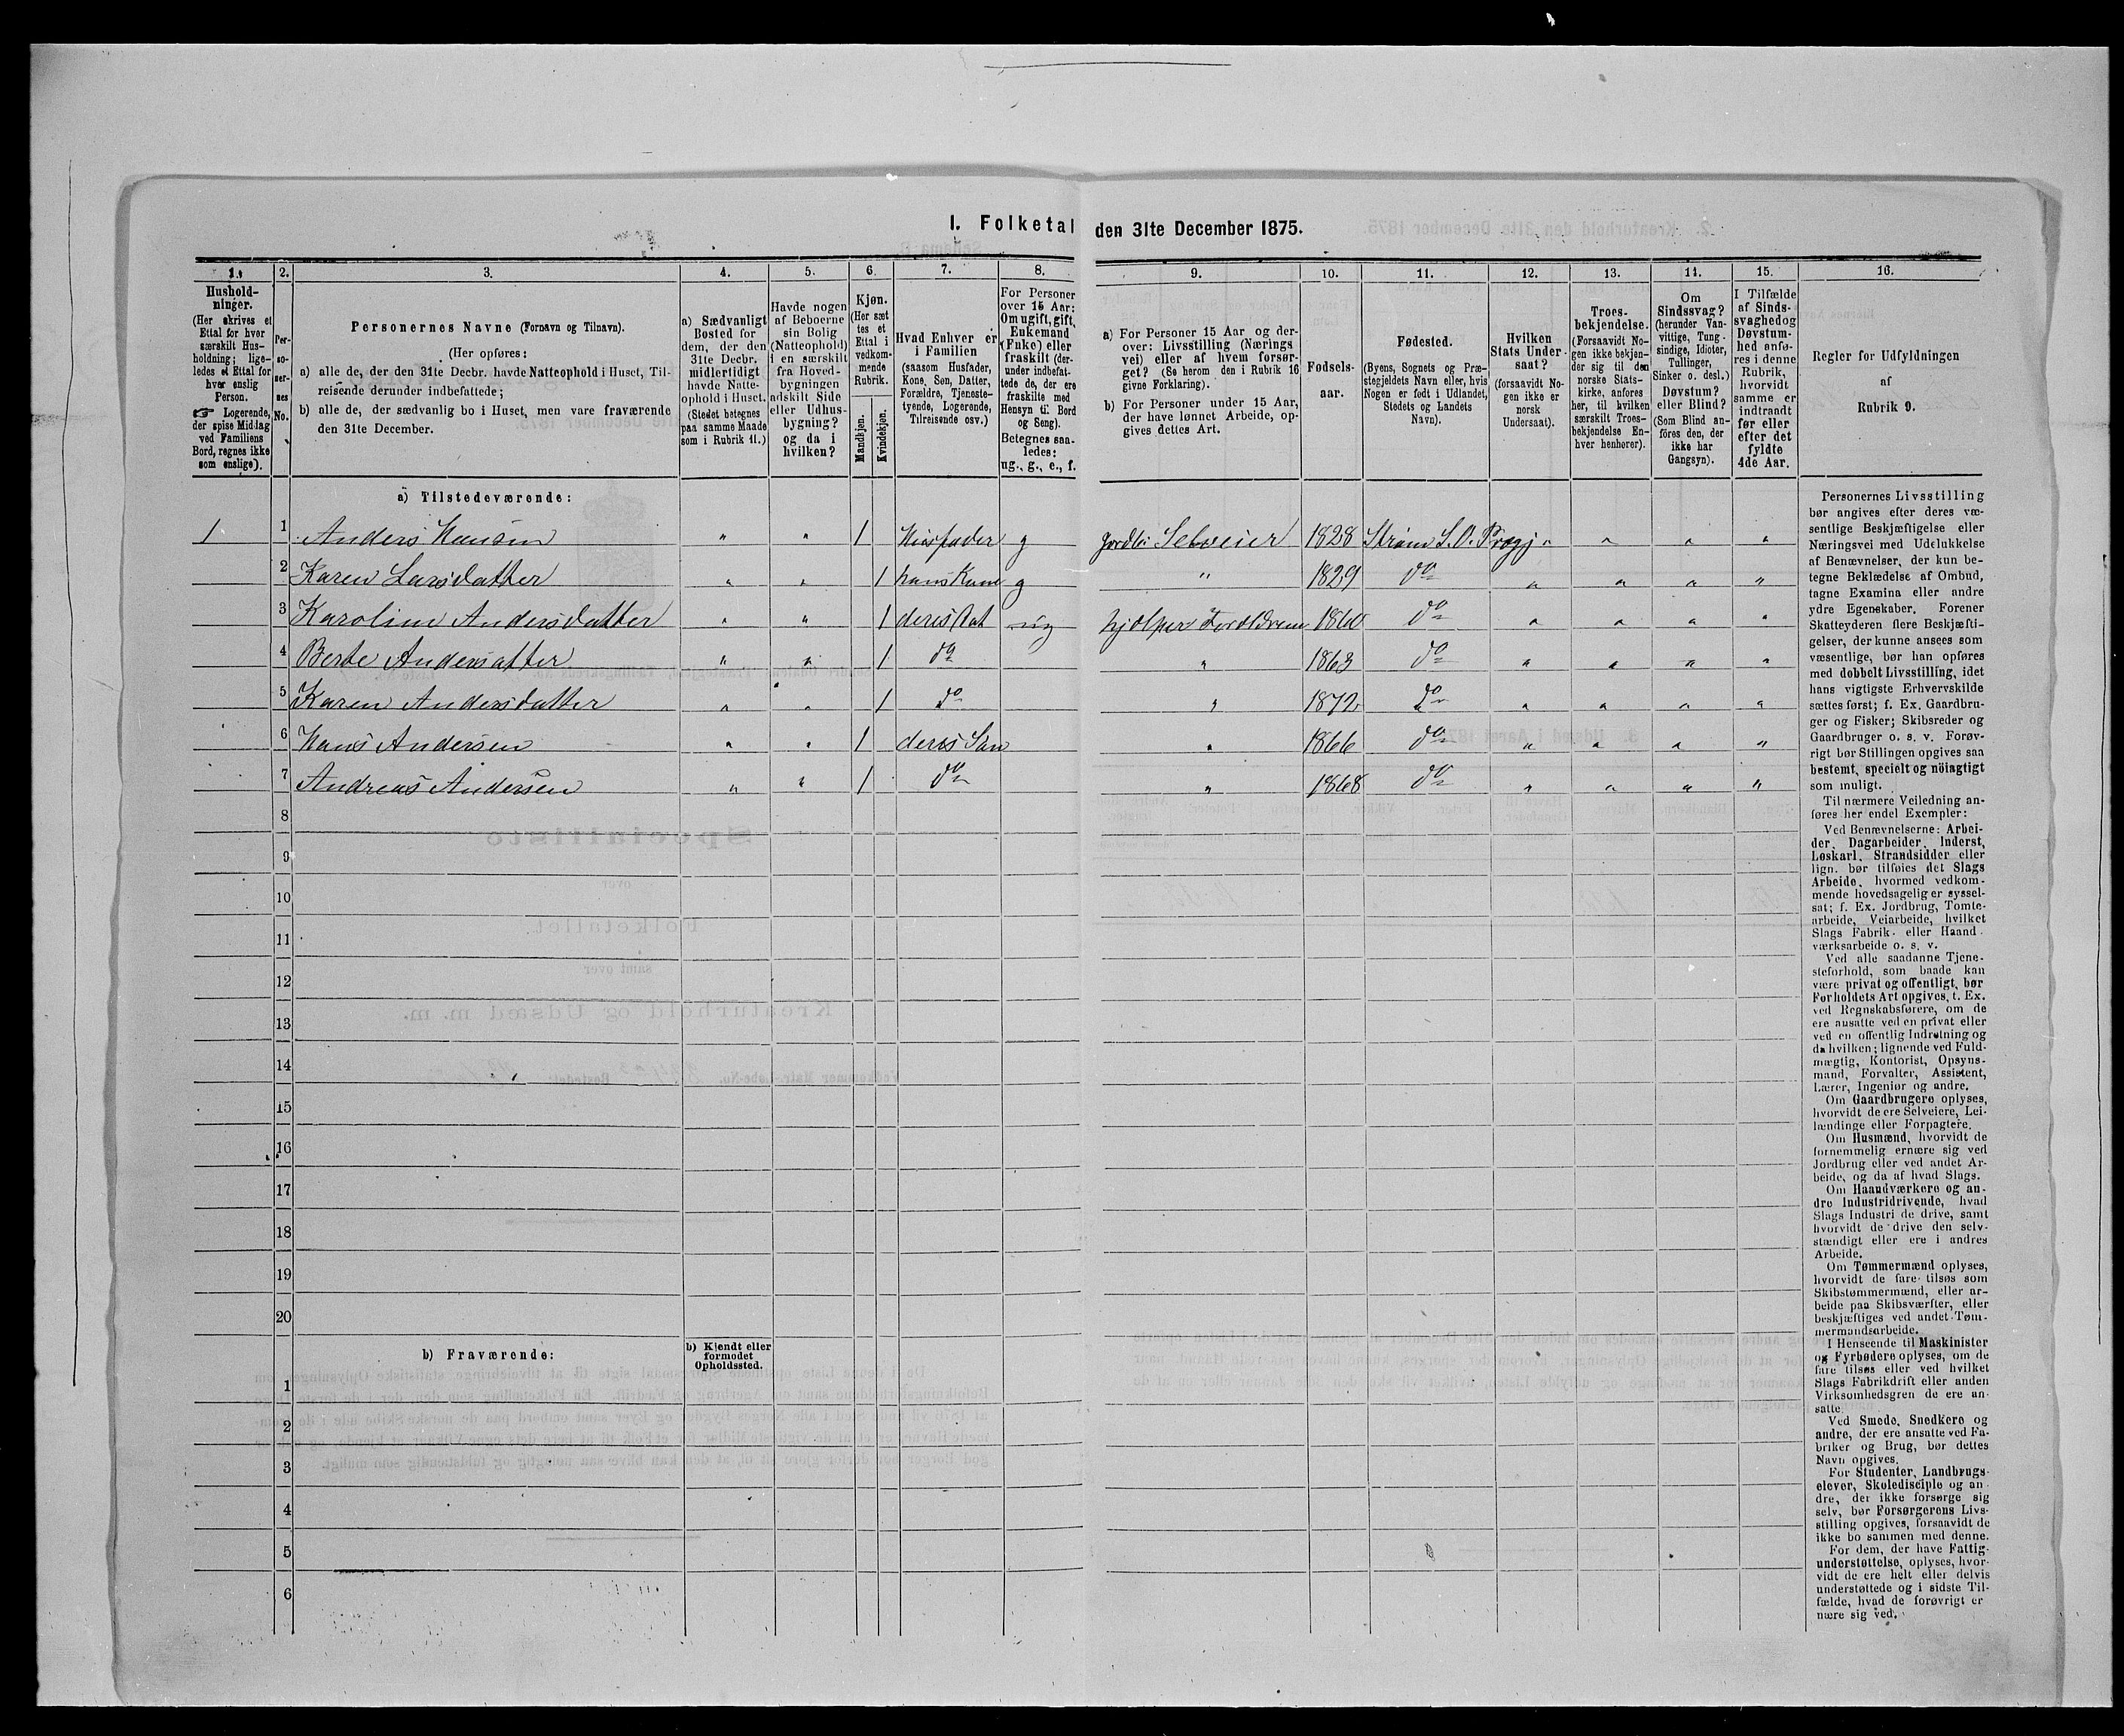 I. Folketal den 31te December 1875.
1.
Hushold-
ninger.
(Her skrives et
Ettal for hver
særskilt Hus-
holdning; lige-
ledes et Ettal for
hver enslig
Person.
☞ Logerende,
der spise Middag
ved Familiens
Bord, regnes ikke
som enslige).
2.
Per-
so-
ner-
nes
No.
3.
Personernes Navne (Fornavn og Tilnavn).
(Her opføres:
a) alle de, der den 31te Decbr. havde Natteophold i Huset, Til-
reisende derunder indbefattede;
b) alle de, der sædvanlig bo i Huset, men vare fraværende
den 31te December.
4.
a) Sædvanligt
Bosted for
dem, der den
31te Decbr.
midlertidigt
havde Natte-
ophold i Huset.
(Stedet betegnes
paa samme Maade
som i Rubrik 11.)
5.
Havde nogen
af Beboerne
sin Bolig
(Natteophold)
i en særskilt
fra Hoved-
bygningen
adskilt Side
eller Udhus-
bygning?
og da i
hvilken?
6.
Kjøn.
(Her sæt
tes et
Ettal i
vedkom-
mende
Rubrik.
Mandkjøn.
Kvindekjøn.
7.
Hvad Enhver er
i Familien
(saasom Husfader,
Kone, Søn, Datter,
Forældre, Tjeneste-
tyende, Logerende,
Tilreisende osv.)
8.
For Personer
over 15 Aar:
Om ugift, gift,
Enkemand
(Enke) eller
fraskilt (der-
under indbefat-
tede de, der ere
fraskilte med
Hensyn til Bord
og Seng).
Betegnes saa-
ledes:
ug., g., e., f.
9.
a) For Personer 15 Aar og der-
over: Livsstilling (Nærings
vei) eller af hvem forsør-
get? (Se herom den i Rubrik 16
givne Forklaring).
b) For Personer under 15 Aar,
der have lønnet Arbeide, op-
gives dettes Art.
10.
Fødsels-
aar.
11.
Fødested.
(Byens, Sognets og Præ-
stegjeldets Navn eller, hvis
Nogen er født i Udlandet,
Stedets og Landets
Navn).
12.
Hvilken
Stats Under-
saat?
(forsaavidt No-
gen ikke er
norsk
Undersaat).
13.
Troes-
bekjendelse.
(Forsaavidt No-
gen ikke bekjen-
der sig til den
norske Stats-
kirke, anføres
her, til hvilken
særskilt Troes-
bekjendelse En-
hver henhører).
11.
Om
Sindssvag?
(herunder Van-
vittige, Tung-
sindige, Idioter,
Tullinger,
Sinker o. desl.)
Døvstum?
eller Blind?
(Som Blind an-
føres den, der
ikke har
Gangsyn).
15.
I Tilfælde
af Sinds-
svaghed og
Døvstum-
hed anfø-
res i denne
Rubrik,
hvorvidt
samme er
indtraadt
før eller
efter det
fyldte
4de Aar.
16.
Regler for Udfyldningen
af
Rubrik 9.
a) Tilstedeværende:
1 1 Anders Hansen " " 1 Husfader g Jordbr. Selveier 1828 Strøm S. O. Prægj " " " "
2 Karen Larsdatter " " 1 hans Kone g " 1829 do " " " "
3 Karoline Andersdatter " " 1 deres Dat ug hjælper Forældrene 1860 do " " " "
4 Berte Andersatter " " 1 do " 1863 do " " " "
5 Karen Andersdatter " " 1 do " 1872 do " " " "
6 Hans Andersen " " 1 deres Søn " 1866 do " " " "
7 Andreas Andersen " " 1 do " 1868 do " " " "
8
9
10
11
12
13
14
15
16
17
18
19
20
b) Fraværende:
b) Kjendt eller
formodet
Opholdssted.
1
2
3
4
5
6
Personernes Livsstilling
bør angives efter deres væ-
sentlige Beskjæftigelse eller
Næringsvei med Udelukkelse
af Benævnelser, der kun be-
tegne Beklædelse af Ombud,
tagne Examina eller andre
ydre Egenskaber. Forener
Skatteyderen flere Beskjæfti-
gelser, der kunne ansees som
væsentlige, bør han opføres
med dobbelt Livsstilling, idet
hans vigtigste Erhvervskilde
sættes først; f. Ex. Gaardbru-
ger og Fisker; Skibsreder og
Gaardbruger o. s. v. Forøv-
rigt bør Stillingen opgives saa
bestemt, specielt og nöiagtigt
som muligt.
Til nærmere Veiledning an-
føres her endel Exempler:
Ved Benævnelserne: Arbei-
der, Dagarbeider, Inderst,
Løskarl, Strandsidder eller
lign. bør tilføies det Slags
Arbeide, hvormed vedkom-
mende hovedsagelig er syssel-
sat; f. Ex. Jordbrug, Tomte-
arbeide, Veiarbeide, hvilket
Slags Fabrik- eller Haand-
værksarbeide o. s. v.
Ved alle saadanne Tjene-
steforhold, som baade kan
være privat og offentligt, bør
Forholdets Art opgives, f. Ex.
ved Regnskabsførere, om de
ere ansatte ved en privat eller
ved en offentlig Indretning og
da hvilken; lignende ved Fuld-
mægtig, Kontorist, Opsyns-
mand, Forvalter, Assistent,
Lærer, Ingeniør og andre.
Om Gaardbrugere oplyses,
hvorvidt de ere Selveiere, Lei-
lændinge eller Forpagtere.
Om Husmænd, hvorvidt de
fornemmelig ernære sig ved
Jordbrug eller ved andet Ar-
beide, og da af hvad Slags.
Om Haandværkere og an-
dre Industridrivende, hvad
Slags Industri de drive, samt
hvorvidt de drive den selv-
stændigt eller ere i andres
Arbeide.
Om Tømmermænd oplyses,
hvorvidt de fare tilsøs som
Skibstømmermænd, eller ar-
beide paa Skibsværfter, eller
beskjæftiges ved andet Tøm-
mermandsarbeide.
I Henseende til Maskinister
og Fyrbødere oplyses, om de
fare tilsøs eller ved hvilket
Slags Fabrikdrift eller anden
Virksomhedsgren de ere an-
satte.
Ved Smede, Snedkere og
andre, der ere ansatte ved Fa-
briker og Brug, bør dettes
Navn opgives.
For Studenter, Landbrugs-
elever, Skoledisciple og an-
dre, der ikke forsørge sig
selv, bør Forsørgerens Livs-
stilling opgives, forsaavidt de
ikke bo sammen med denne.
For dem, der have Fattig-
understøttelse, oplyses, hvor-
vidt de ere helt eller delvis
understøttede og i sidste Til-
fælde, hvad de forøvrigt er
nære sig ved.